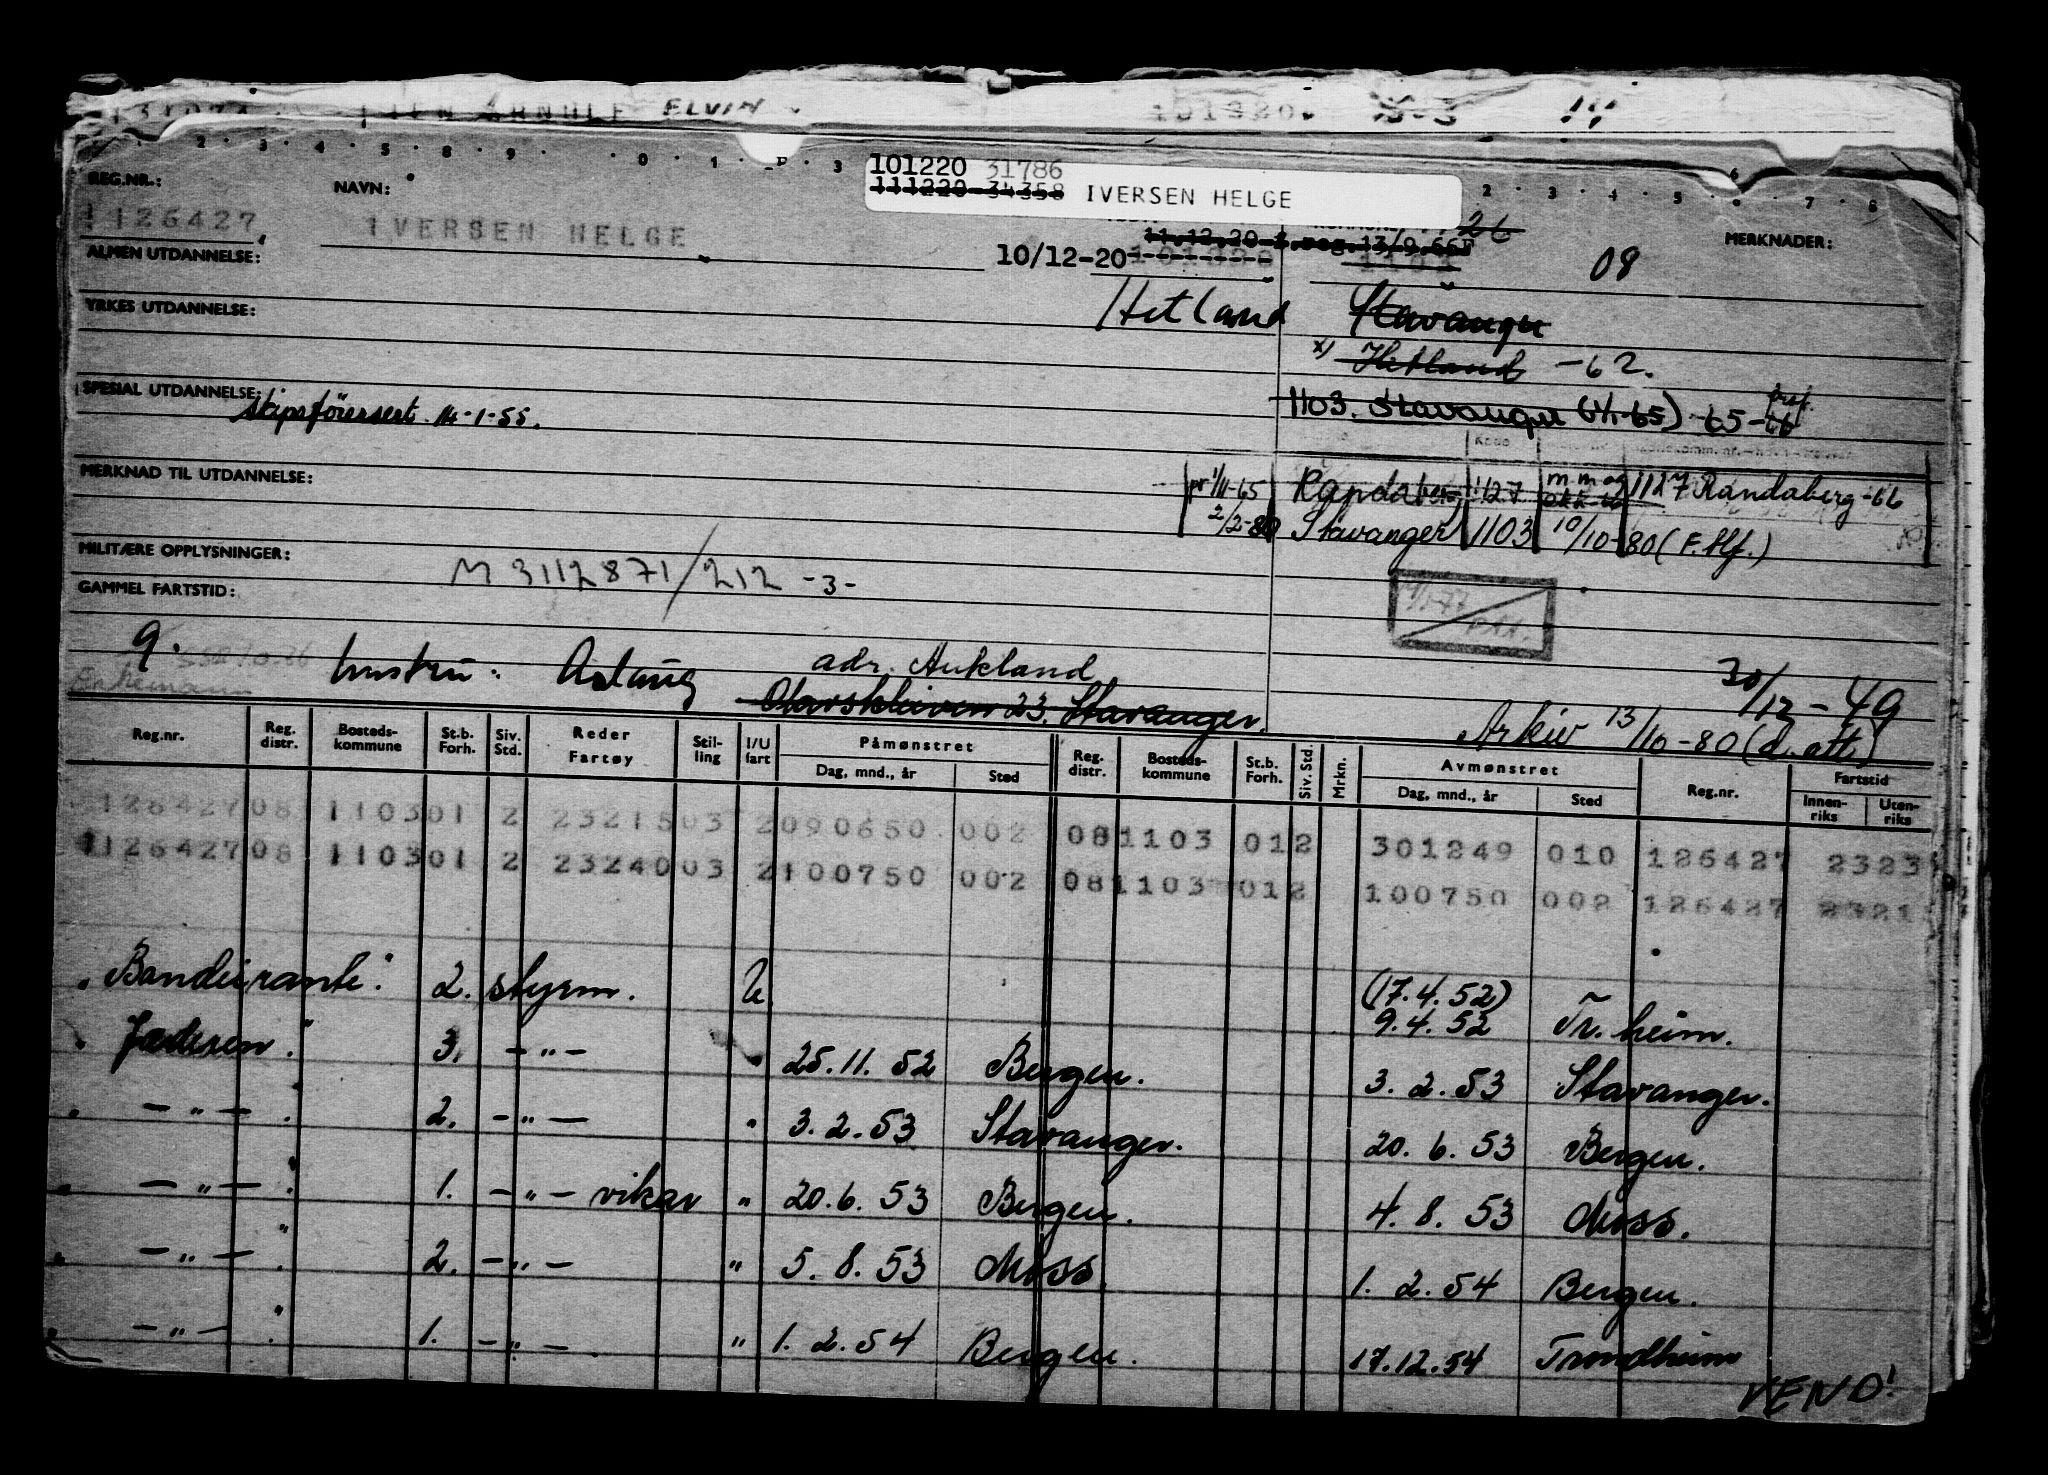 ELVIN
101220. 3-3
101220 31786
111220-34358 IVERSEN HELGE
REG.NR.: NAVN:
126427 IVERSEN HELGE
11.12.20 reg. 13/9.66 26
MERKNADER:
ALMEN UTDANNELSE: 10/12-20 08
YRKES UTDANNELSE: Hetland Stavanger
x) Hetland -62.
SPESIAL UTDANNELSE: skipsførersert. 14-1-55.
1103. Stavanger (1/1-65) -65-66
MERKNAD TIL UTDANNELSE: pr 1/11-65 Randaberg 1127 1127 Randaberg -66
2/2-80 Stavanger 1103 10/10-80 (F.Hf.)
MILITÆRE OPPLYSNINGER: M 3112871/212 -3-
GAMMEL FARTSTID:
9. hustru: Aslaug adr. Aukland
23. Stavanger.
30/12-49
Arkiv 13/10-80 (d. att)
Reg.nr. Reg. distr. Bosteds-kommune St.b. Forh. Siv. Std. Reder Fartøy Stil-ling I/U fart Påmønstret Dag, mnd., år Sted Reg. distr. Bosteds-kommune St.b. Forh. Siv. Std. Mrkn. Avmønstret Dag, mnd., år Sted Reg.nr. Fartstid Innen-riks Uten-riks
126427 08 1103 01 2 23215 03 2 090650 002 08 1103 01 2 301249 010 126427 2323
126427 08 1103 01 2 23240 03 2 100750 002 08 1103 01 2 100750 002 126427 2321
"Bandeirante". 2. styrm. U (17.4.52) 9.4.52 Tr.heim.
" Jæderen". 3. -"- " 25.11.52 Bergen. 3.2.53 Stavanger.
" -"- ". 2. -"- " 3.2.53 Stavanger. 20.6.53 Bergen.
" -"- ". 1. -"- vikar " 20.6.53 Bergen. 4.8.53 Moss.
" -"- ". 2. -"- " 5.8.53 Moss. 1.2.54 Bergen.
" -"- ". 1. -"- " 1.2.54 Bergen. 17.12.54 Trondheim
VEND!